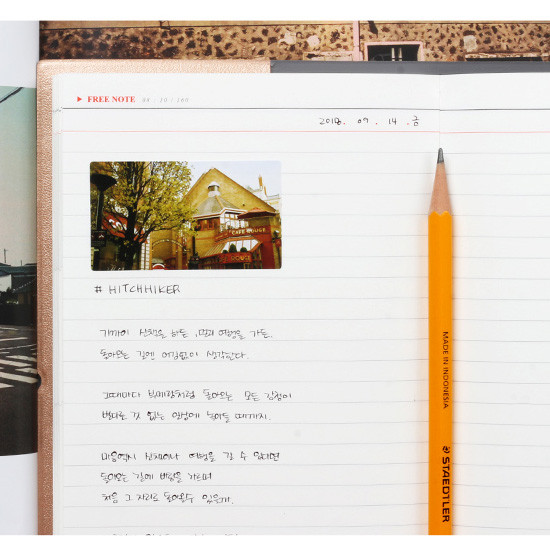 ▶ FREE NOTE
2018. 09. 14. 금
CAFE ROUGE
ROUGE
# HITCHHIKER
가까이 산책을 하든, 멀리 여행을 가든..
돌아오는 길엔 어김없이 생각한다.
그때마다 부메랑처럼 돌아오는 모든 감정이
별다를 것 없는 일상에 녹아들 때까지.
마음역시 산책이나 여행을 갈 수 있다면
돌아오는 길에 바람을 가르며
처음 그 자리로 돌아올 수 있을까.
MADE IN INDONESIA
STAEDTLER